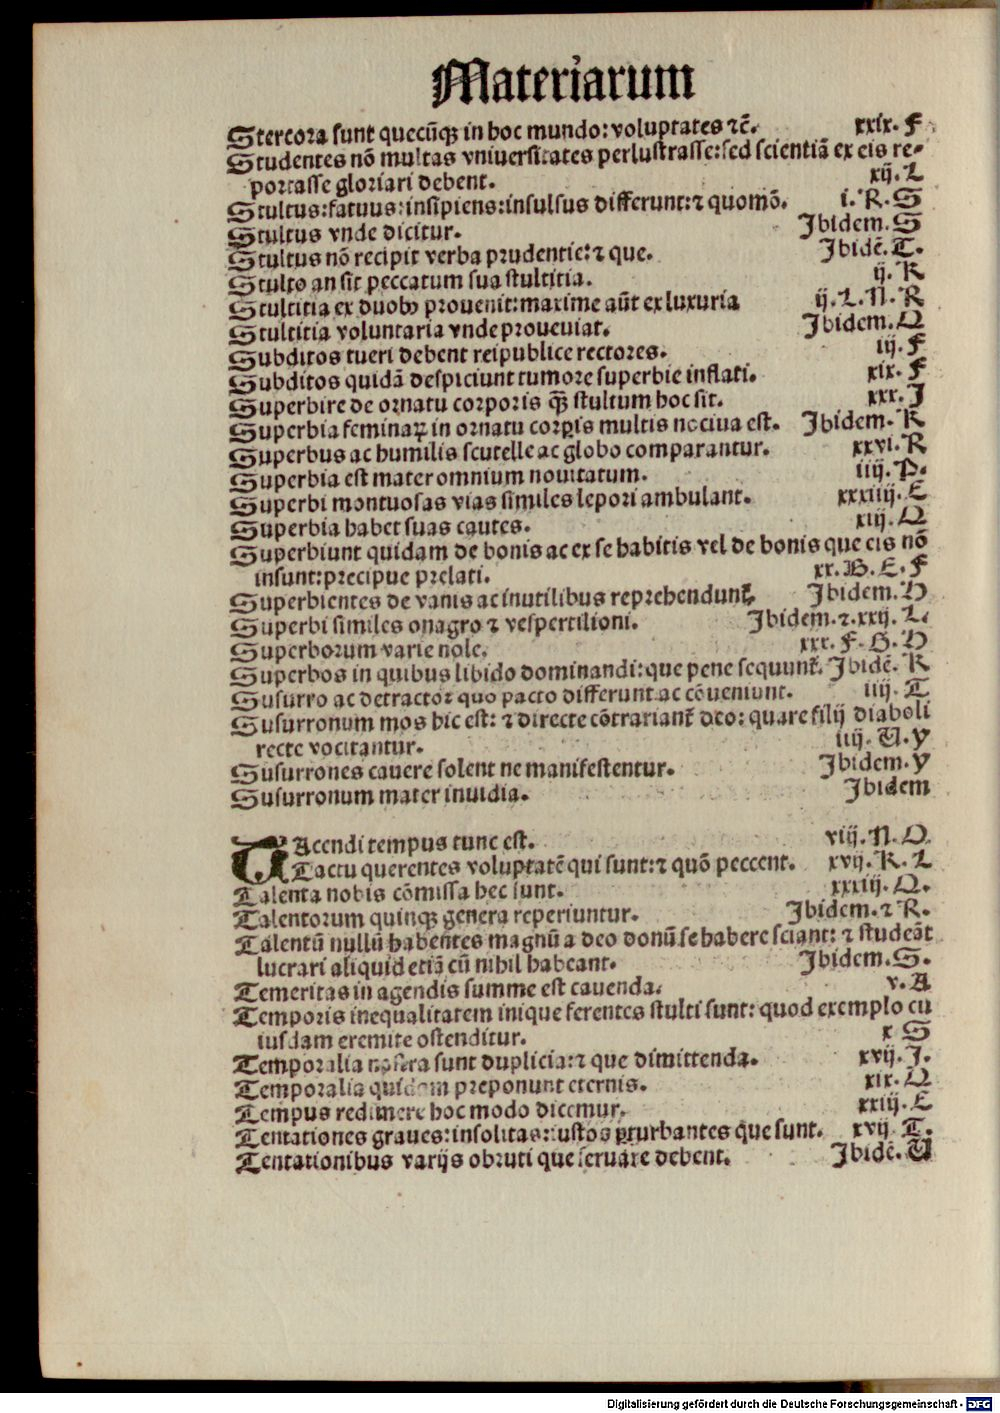 Materiarum
Stercora sunt quecūqꝫ in hoc mundo: voluptates ⁊c̄. xxix. F
Studentes nō multas vniuersitates perlustrasse: sed scientiā ex eis re-
portasse gloriari debent. xij. L
Stultus: fatuus: insipiens: insulsus differunt: ⁊ quomō. i. R. S
Stultus vnde dicitur. Ibidem. S
Stultus nō recipit verba prudentie: ⁊ que. Ibidē. T.
Stulto an sit peccatum sua stultitia. ij. K
Stultitia ex duobꝰ prouenit: maxime aūt ex luxuria ij. L. N. R
Stultitia voluntaria vnde proueuiat. Ibidem. Q
Subditos tueri debent reipublice rectores. iij. F
Subditos quidā despiciunt tumore superbie inflati. xix. F
Superbire de ornatu corporis qꝫ̄ stultum hoc sit. xxx. I
Superbia feminaꝝ in ornatu corꝑis multis nociua est. Ibidem. K
Superbus ac humilis scutelle ac globo comparantur. xxvi. R
Superbia est mater omnium nouitatum. iiij. P.
Superbi montuosas vias similes lepori ambulant. xxxiiij. E
Superbia habet suas cautes. xiij. Q
Superbiunt quidam de bonis ac ex se habitis vel de bonis que eis nō
insunt: precipue prelati. xx. B. E. F
Superbientes de vanis ac inutilibus reprehendunt᷑. Ibidem. H
Superbi similes onagro ⁊ vespertilioni. Ibidem. ⁊. xxij. L.
Superborum varie nole. xxx. F. G. H
Superbos in quibus libido dominandi: que pene sequunt᷑. Ibidē. K
Susurro ac detractor quo pacto differunt ac cōueniunt. iiij. T
Susurronum mos hic est: ⁊ directe cōtrariant᷑ deo: quare filij diaboli
recte vocitantur. iiij. U. Y
Susurrones cauere solent ne manifestentur. Ibidem. Y
Susurronum mater inuidia. Ibidem
TAcendi tempus tunc est. viij. N. O.
Tactu querentes voluptatē qui sunt: ⁊ quō peccent. xvij. K. L
Talenta nobis cōmissa hec sunt. xxxiij. Q.
Talentorum quinqꝫ genera reperiuntur. Ibidem. ⁊ R.
Talentū nullū habentes magnū a deo donū se habere sciant: ⁊ studeāt
lucrari aliquid etiā cū nihil habeant. Ibidem. S.
Temeritas in agendis summe est cauenda. v. A
Temporis inequalitatem inique ferentes stulti sunt: quod exemplo cu
iusdam eremite ostenditur. x S
Temporalia nostra sunt duplicia: ⁊ que dimittenda. xvij. I.
Temporalia quidam preponunt eternis. xix. Q
Tempus redimere hoc modo dicemur. xxiij. E
Tentationes graues: insolitas: iustos ꝑturbantes que sunt. xvij. T.
Tentationibus varijs obruti que seruare debent. Ibidē. U
Digitalisierung gefördert durch die Deutsche Forschungsgemeinschaft - DFG